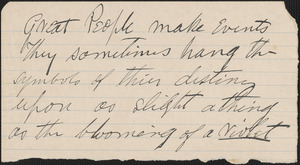 Great People make Events
They sometimes hang th-
symbols of thier destiny
upon as slight a thing
as the blooming of a violet